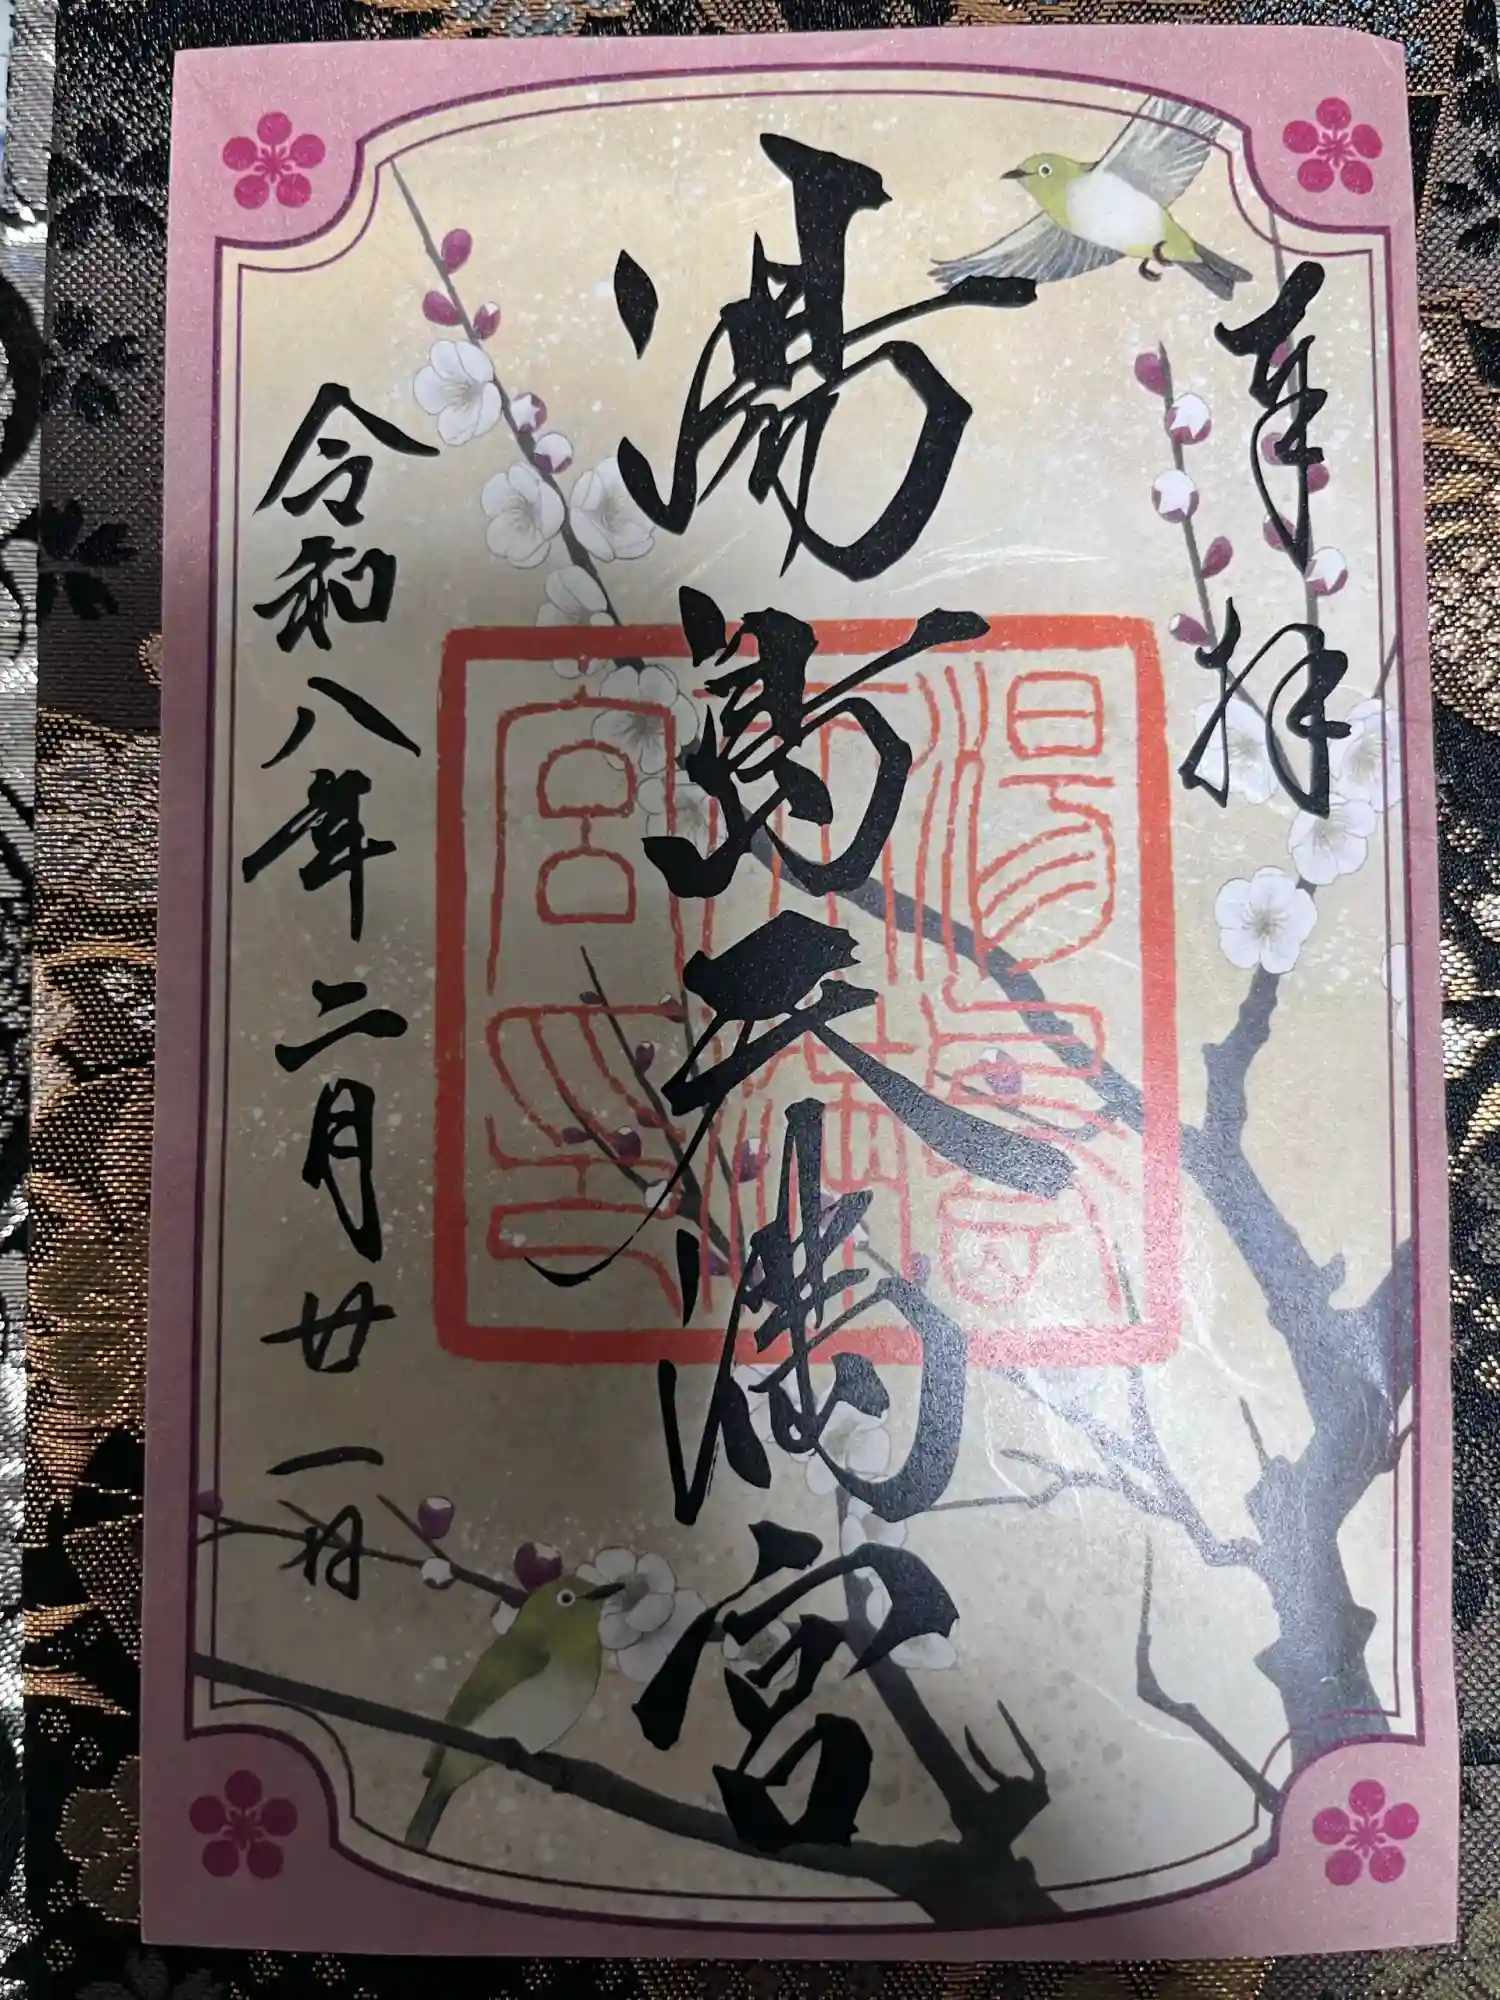 奉拝
湯島天満宮
湯島天満宮印
令和八年二月廿一日